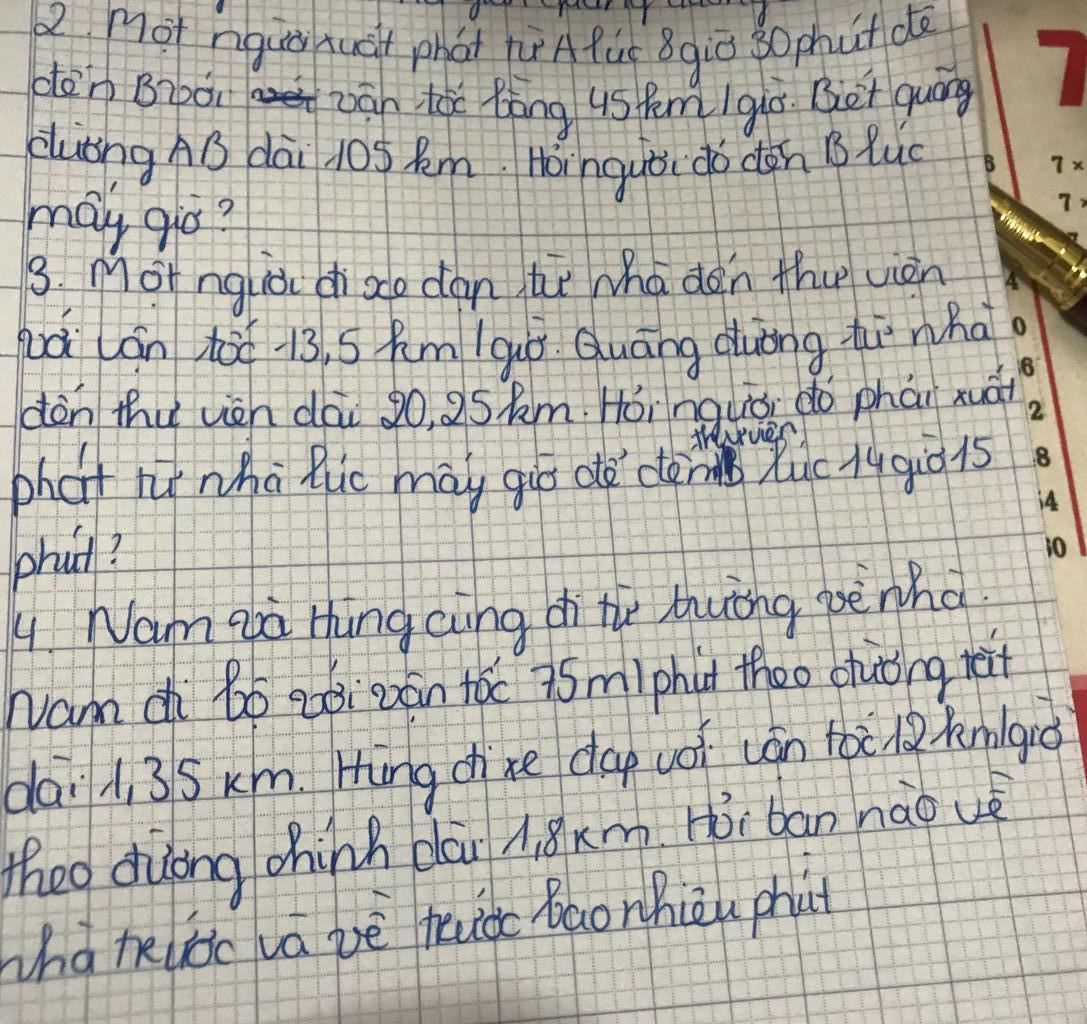 2. Một người xuất phát từ A lúc 8 giờ 30 phút để
đến B với vận tốc bằng 45 km/giờ. Biết quãng
đường AB dài 105 km. Hỏi người đó đến B lúc
mấy giờ?
3. Một người đi xe đạp từ nhà đến thư viện
với vận tốc 13,5 km/giờ. Quãng đường từ nhà
đến thư viện dài 20,25 km. Hỏi người đó phải xuất
thư viện
phát từ nhà lúc mấy giờ để đến lúc 14 giờ 15
phút?
4. Nam và Hùng cùng đi từ trường về nhà.
Nam đi bộ với vận tốc 75 m/phút theo đường tắt
dài 1,35 km. Hùng đi xe đạp với vận tốc 12 km/giờ
theo đường chính dài 1,8 km. Hỏi bạn nào về
nhà trước và về trước bao nhiêu phút
7
7 ×
7 ×
7
8
4
0
6
2
8
4
0